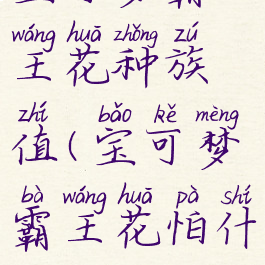 wáng huā zhǒng zú
王花种族
zhí bǎo kě mèng
值(宝可梦
bà wáng huā pà shí
霸王花怕什